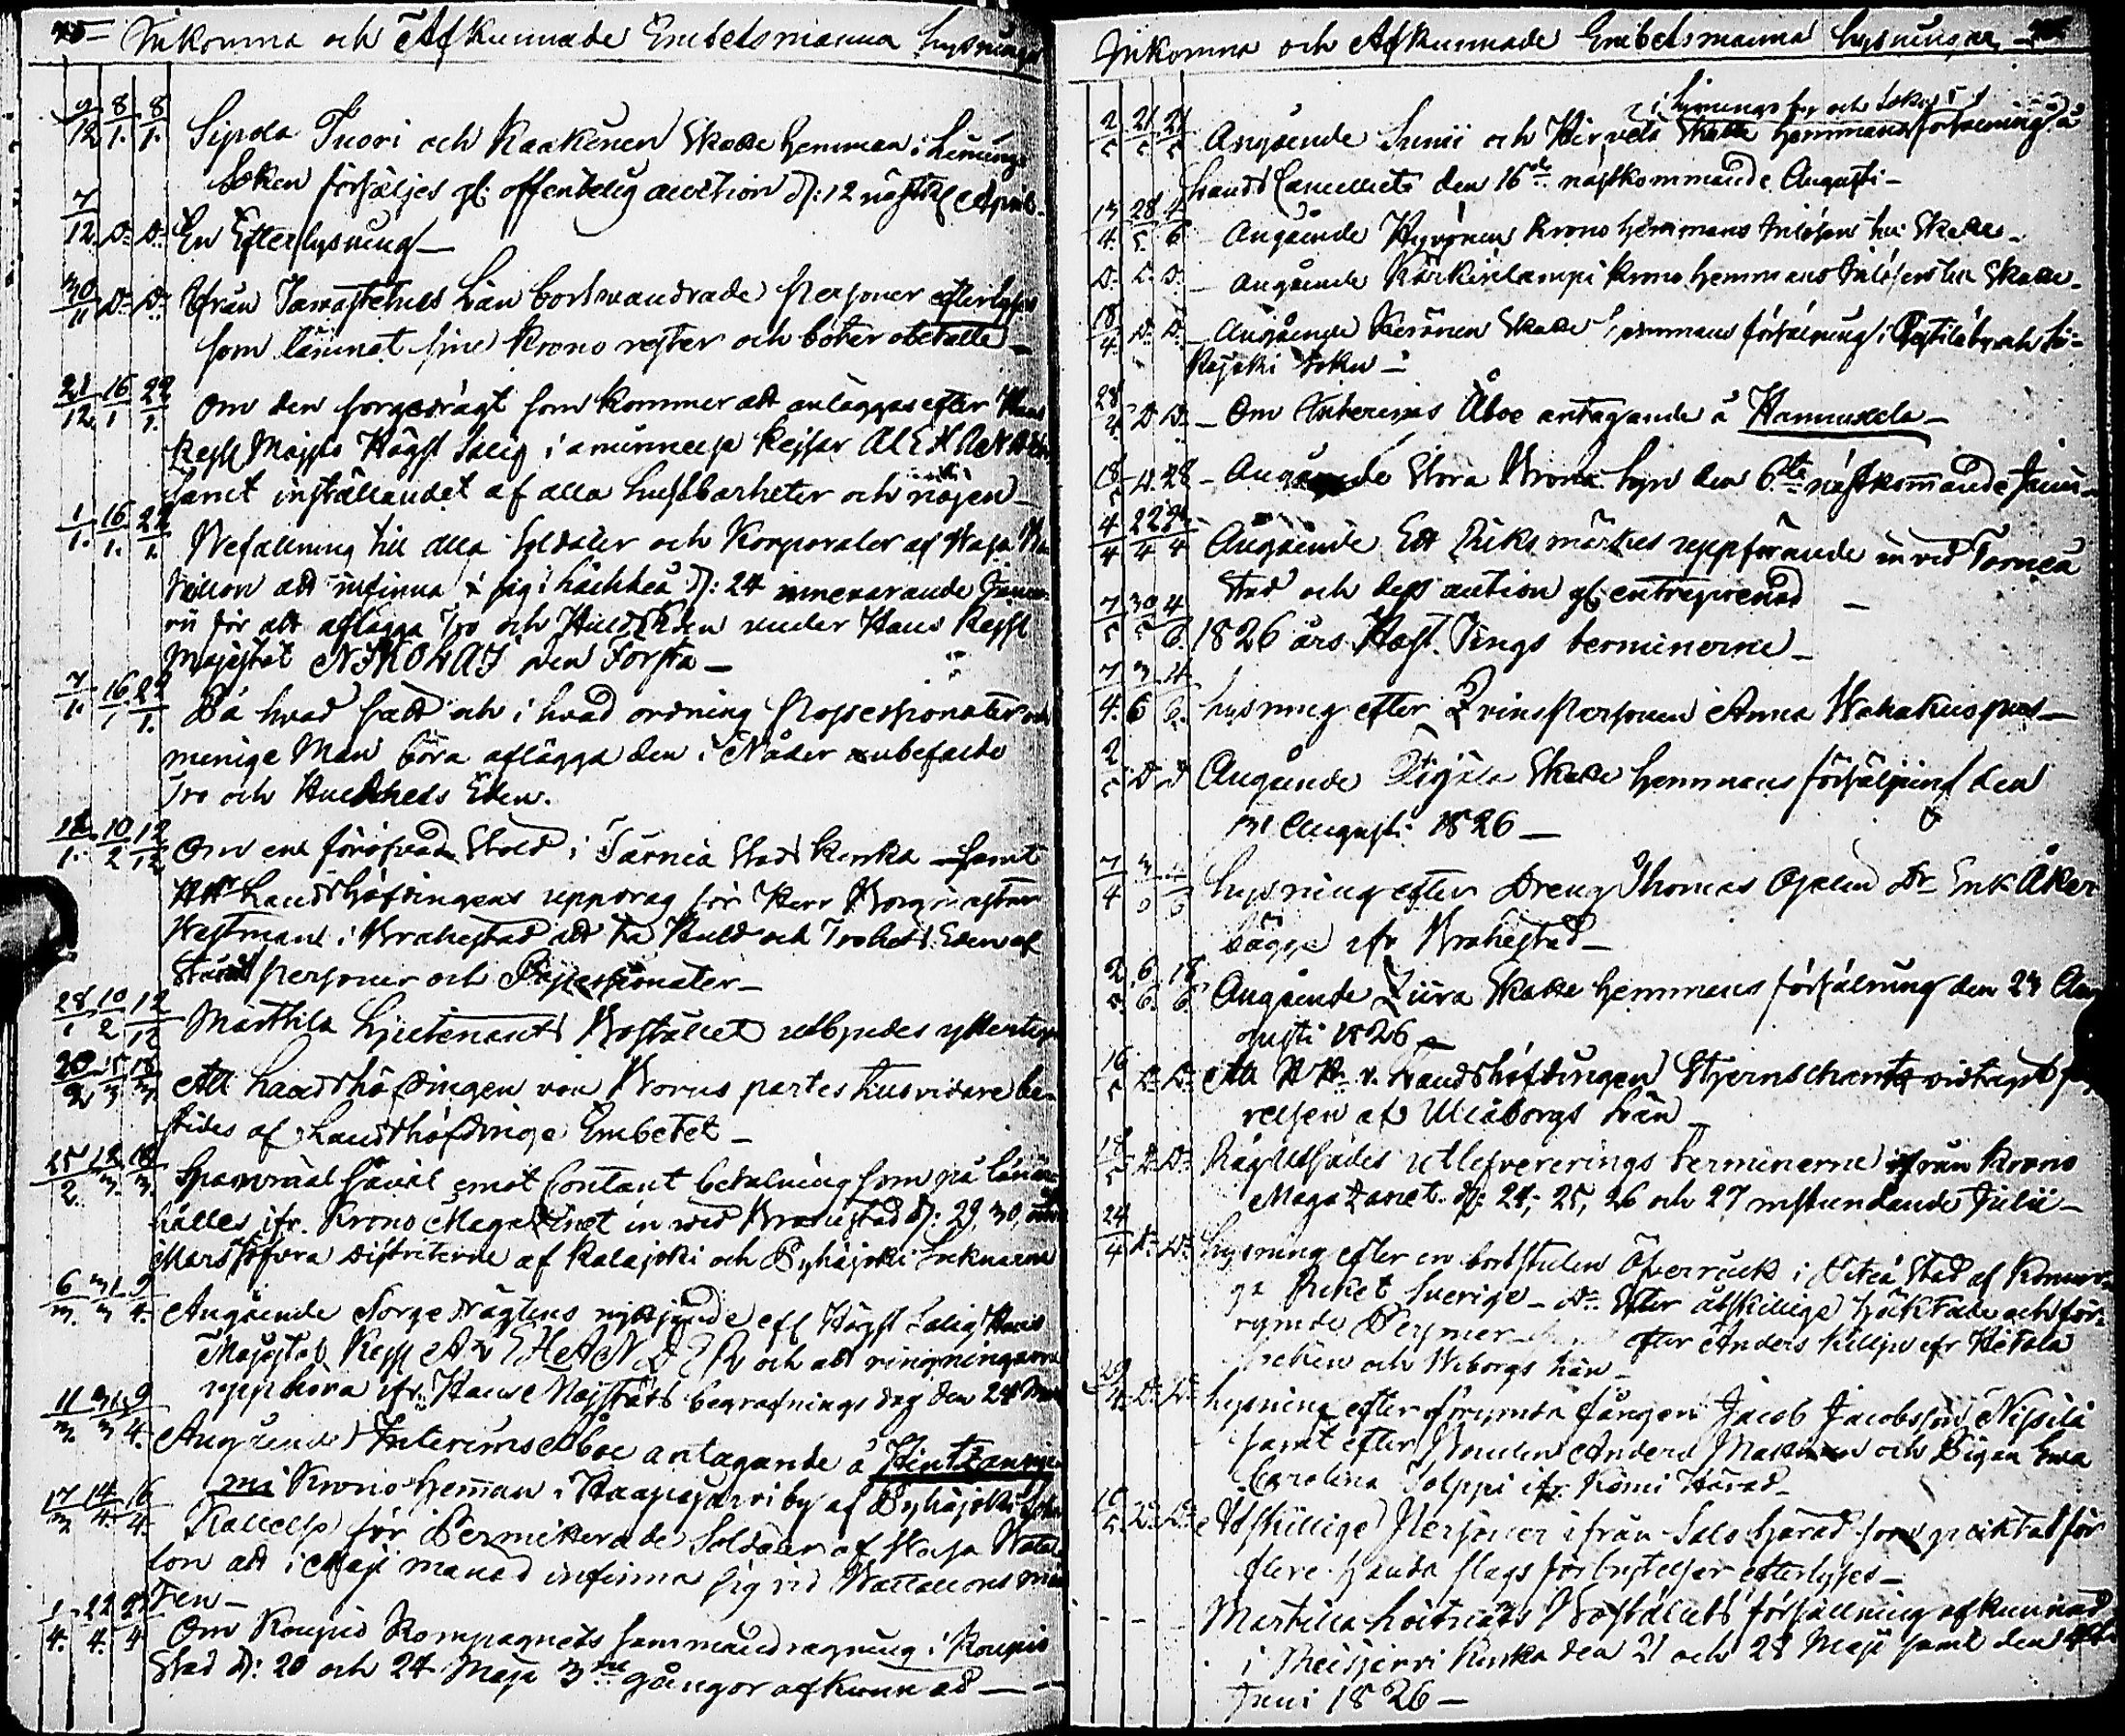 Inkomna och Afkunnade Embetsmanna Lysningar
9/12 8/1. 8/1. Sipola Tuori och Kaakinen Skatte hemman i Liminge
Soken försäljes gl: offentelig auction d: 12 nästk April.
7/12 Do Do En Efterlysning —
30/11 Do Do Ifrån Tawastehus Län bortwandrade personer efterlyses
som lämnat sine Krono rester och böter obetalte —
21/12 16/1 22/1. Om den sorgedrägt som kommer att anläggas efter Hans
Kejsl Majsts Högst Salig i åminnelse Kejsar ALEXANDER
samt inställandet af alla lustbarheter och nöjen —
1/1. 16/1. 22/1. Befallning till alla Soldater och Korporaler af Wasa Ba
tallion att infinna sig i d: 24 innevarande Janua
rii för att aflägga Tro och Huldhets Eden under Hans Kejsl
Majestät NIKOLAI den Första —
7/1. 16/1 22/1. På hvad sätt och i hvad ordning Possessionater och
menige Man böra aflägga den i Nåder anbefalte
Tro och Huldhets Eden.
18/1. 10/2 12/12 Om en föröfvad Stöld i Tärneå Stads Kyrka — samt
Landshöfdingens uppdrag för Herr Borgmästar
Westman i Brahestad att ta Huld och Trohets Eden af
Stånds personer och Possessionater —
28/1 10/2 12/12 Marttila Ljeutenants Bostället utbjudes ytterligare
20/2 5/3 18/3 Att Landshöfdingen von Borns partes tils vidare be-
strides af Landshöfdinge Embetet —
25/2. 12/3. 18/3. Spannmål såväl emot Contant betalning som på lån
hålles ifr. Krono Magazinet in wed Brahestad d: 29, 30,
Mars för öfvra districterne af Kalajoki och Pyhäjoki Soknarne
6/3. 31/3 9/4. Angående Sorge drägtens nyttjande eft Högst Salig Hans
Majestät Kejsl ALEXANDER och att ringningarne
upphöra ifr. Hans Majstäts begrafnings dag den 24 Mars
11/3. 31/3 9/4. Angående Interims Åboe antagande å Hintzannie
mi Krono hemman i Haapajärvi by af Pyhäjoki Sokn
17/3. 14/4. 16/4. Kallelse för Permitterade Soldater af Wasa Batal
lon att i Maji månad infinna sig vid Battallions mö
ten —
1/4. 22/4. 23/4 Om Koupio Kompagnets sammandragning i Koupio
Stad d: 20 och 24 Maji 3ne gångor afkunnad —
Inkomna och Afkunnade Embetsmanna Lysningar
i Limingo by och Sokn
2/5 21/5 21/5 Angående Lumi och Hirvelä Skatte hemmans försälning å
Lands Cancelliet den 16de nästkommande Augusti —
13/4. 28/5 4/6 — Angående Hyvönen Krono hemmans Inlösen til Skatte —
Do Do Do — Angående Kärkinlampi Krono hemmans Inlösen til Skatte —
18/4. Do Do — Angående Kesänen Skatte hemmans försälning i Pestilä by och Si-
kajoki Soken —
28/4. Do Do — Om Interims Åboe antagande å Hannuxela —
18/5 Do 28 — Angående Stora Brona syn den 6te nästkommande Junii
4/4 22/4 23/4 Angående Ett Riksmärkes uppförande in wid Torneå
Stad och dess auction gl: entreprenad —
7/5 30/5 4/6. 1826 års Höst Tings terminerne —
7/4. 3/6 4/6. Lysning efter Qvinspersonen Anna
2/5 Do Do Angående Skatte hemmans försäljning den
31 Augusti 1826 —
7/4 3/6 4/6 Lysning efter Dreng Thomas Ojalin Do Erik Åker
bägge ifr Brahestad —
2/5. 6/6. 18/6. Angående Skatte hemmans försälning den 23 Au
gusti 1826 —
16/5 Do Do Att v. Landshöfdingen Stjernschantz vidtagit sty
relsen af Uleåborgs Län —
18/5 Do Do Råg Utsädes utlefvererings terminerne ifrån Krono
Magazanet d: 24, 25, 26 och 27 nstundande Julii —
24/4 Do Do Lysning efter en bortstulen Öfverrock i Piteå Stad af Konun-
ga Riket Sverige — Do Efter åtskillige häktade och för-
rymde Personer efter Anders ifr Hitola
Socken och Wiborgs Län —
29/4. Do Do Lysning efter förrymda fången Jacob Jacobsson Nissilä
samt efter Bonden Anders och Pigan Ewa
Carolina Tolppi ifr. Kemi Härad —
10/5. Do Do Åtskillige Personer ifrån Salo Härad för
flere handa slags förbrytelser efterlyses —
- - - Marttila Löitnants Boställets försällning afkunnad
i Kyrka den 21 och 28 Maji samt den 4de
Juni 1826 —